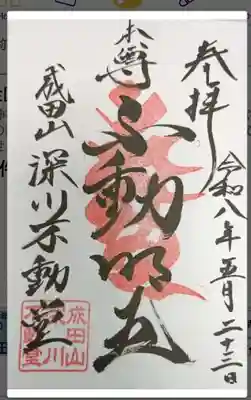 奉拝
令和八年五月二十三日
本尊
不動明王
成田山
深川不動堂
成田山
深川
不動堂